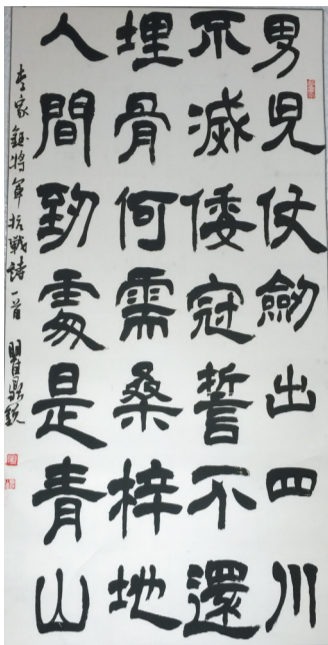 男兒仗劍出四川
不滅倭寇誓不還
埋骨何需桑梓地
人間到處是青山
李家鈺將軍抗戰詩一首 瞿鼎